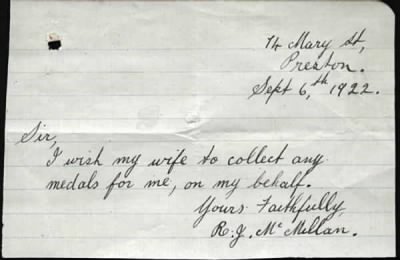 74 Mary St,
Preston.
Sept 6,th 1922.
Sir,
I wish my wife to collect any
medals for me, on my behalf.
Yours Faithfully,
R.J. McMillan.